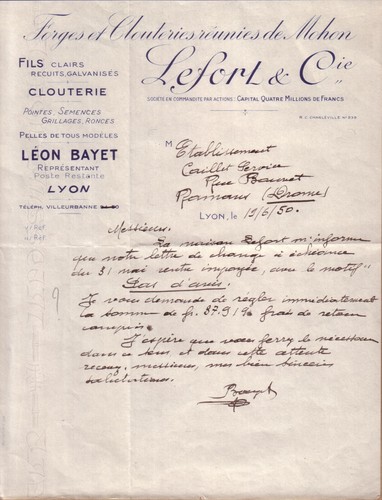 Forges et Clouteries réunies de Mohon
Lefort & Cie
SOCIÉTÉ EN COMMANDITE PAR ACTIONS : CAPITAL QUATRE MILLIONS DE FRANCS
R. C. CHARLEVILLE Nº
FILS CLAIRS
RECUITS, GALVANISÉS
CLOUTERIE
POINTES, SEMENCES
GRILLAGES, RONCES
PELLES DE TOUS MODÈLES
LÉON BAYET
REPRÉSENTANT
Poste Restante
LYON
TÉLÉPH. VILLEURBANNE
V/Réf
N/Réf
M Etablissement
Caillet
Rue
Romans (Drome)
LYON, le 19/6/50.
Messieurs.
La maison Lefort m'informe
que notre lettre de change a échéance
du 31 mai revenu impayée, avec le motif
Pas d'avis.
Je vous demande de régler immédiatement
la somme de fr. frais de retour
compris.
J'espère que vous ferez le nécessaire
dans ce sens et dans cette attente
recevez, messieurs, mes bien sincères
salutations.
Bayet